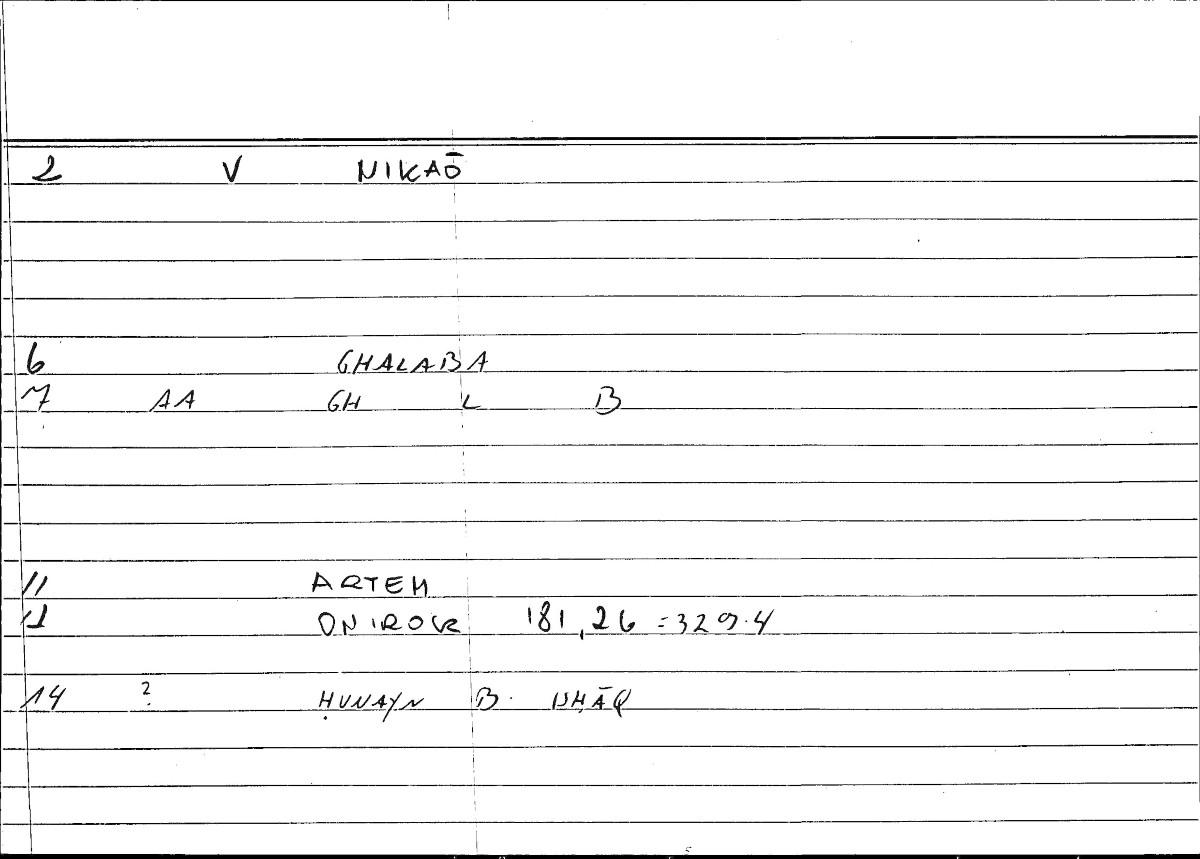 2 V NIKAŌ
6 GHALABA
7 AA GH L B
11 ARTEM
12 ONIROCR 181,26 = 329.4
14 ? ḤUNAYN B. ISḤĀQ